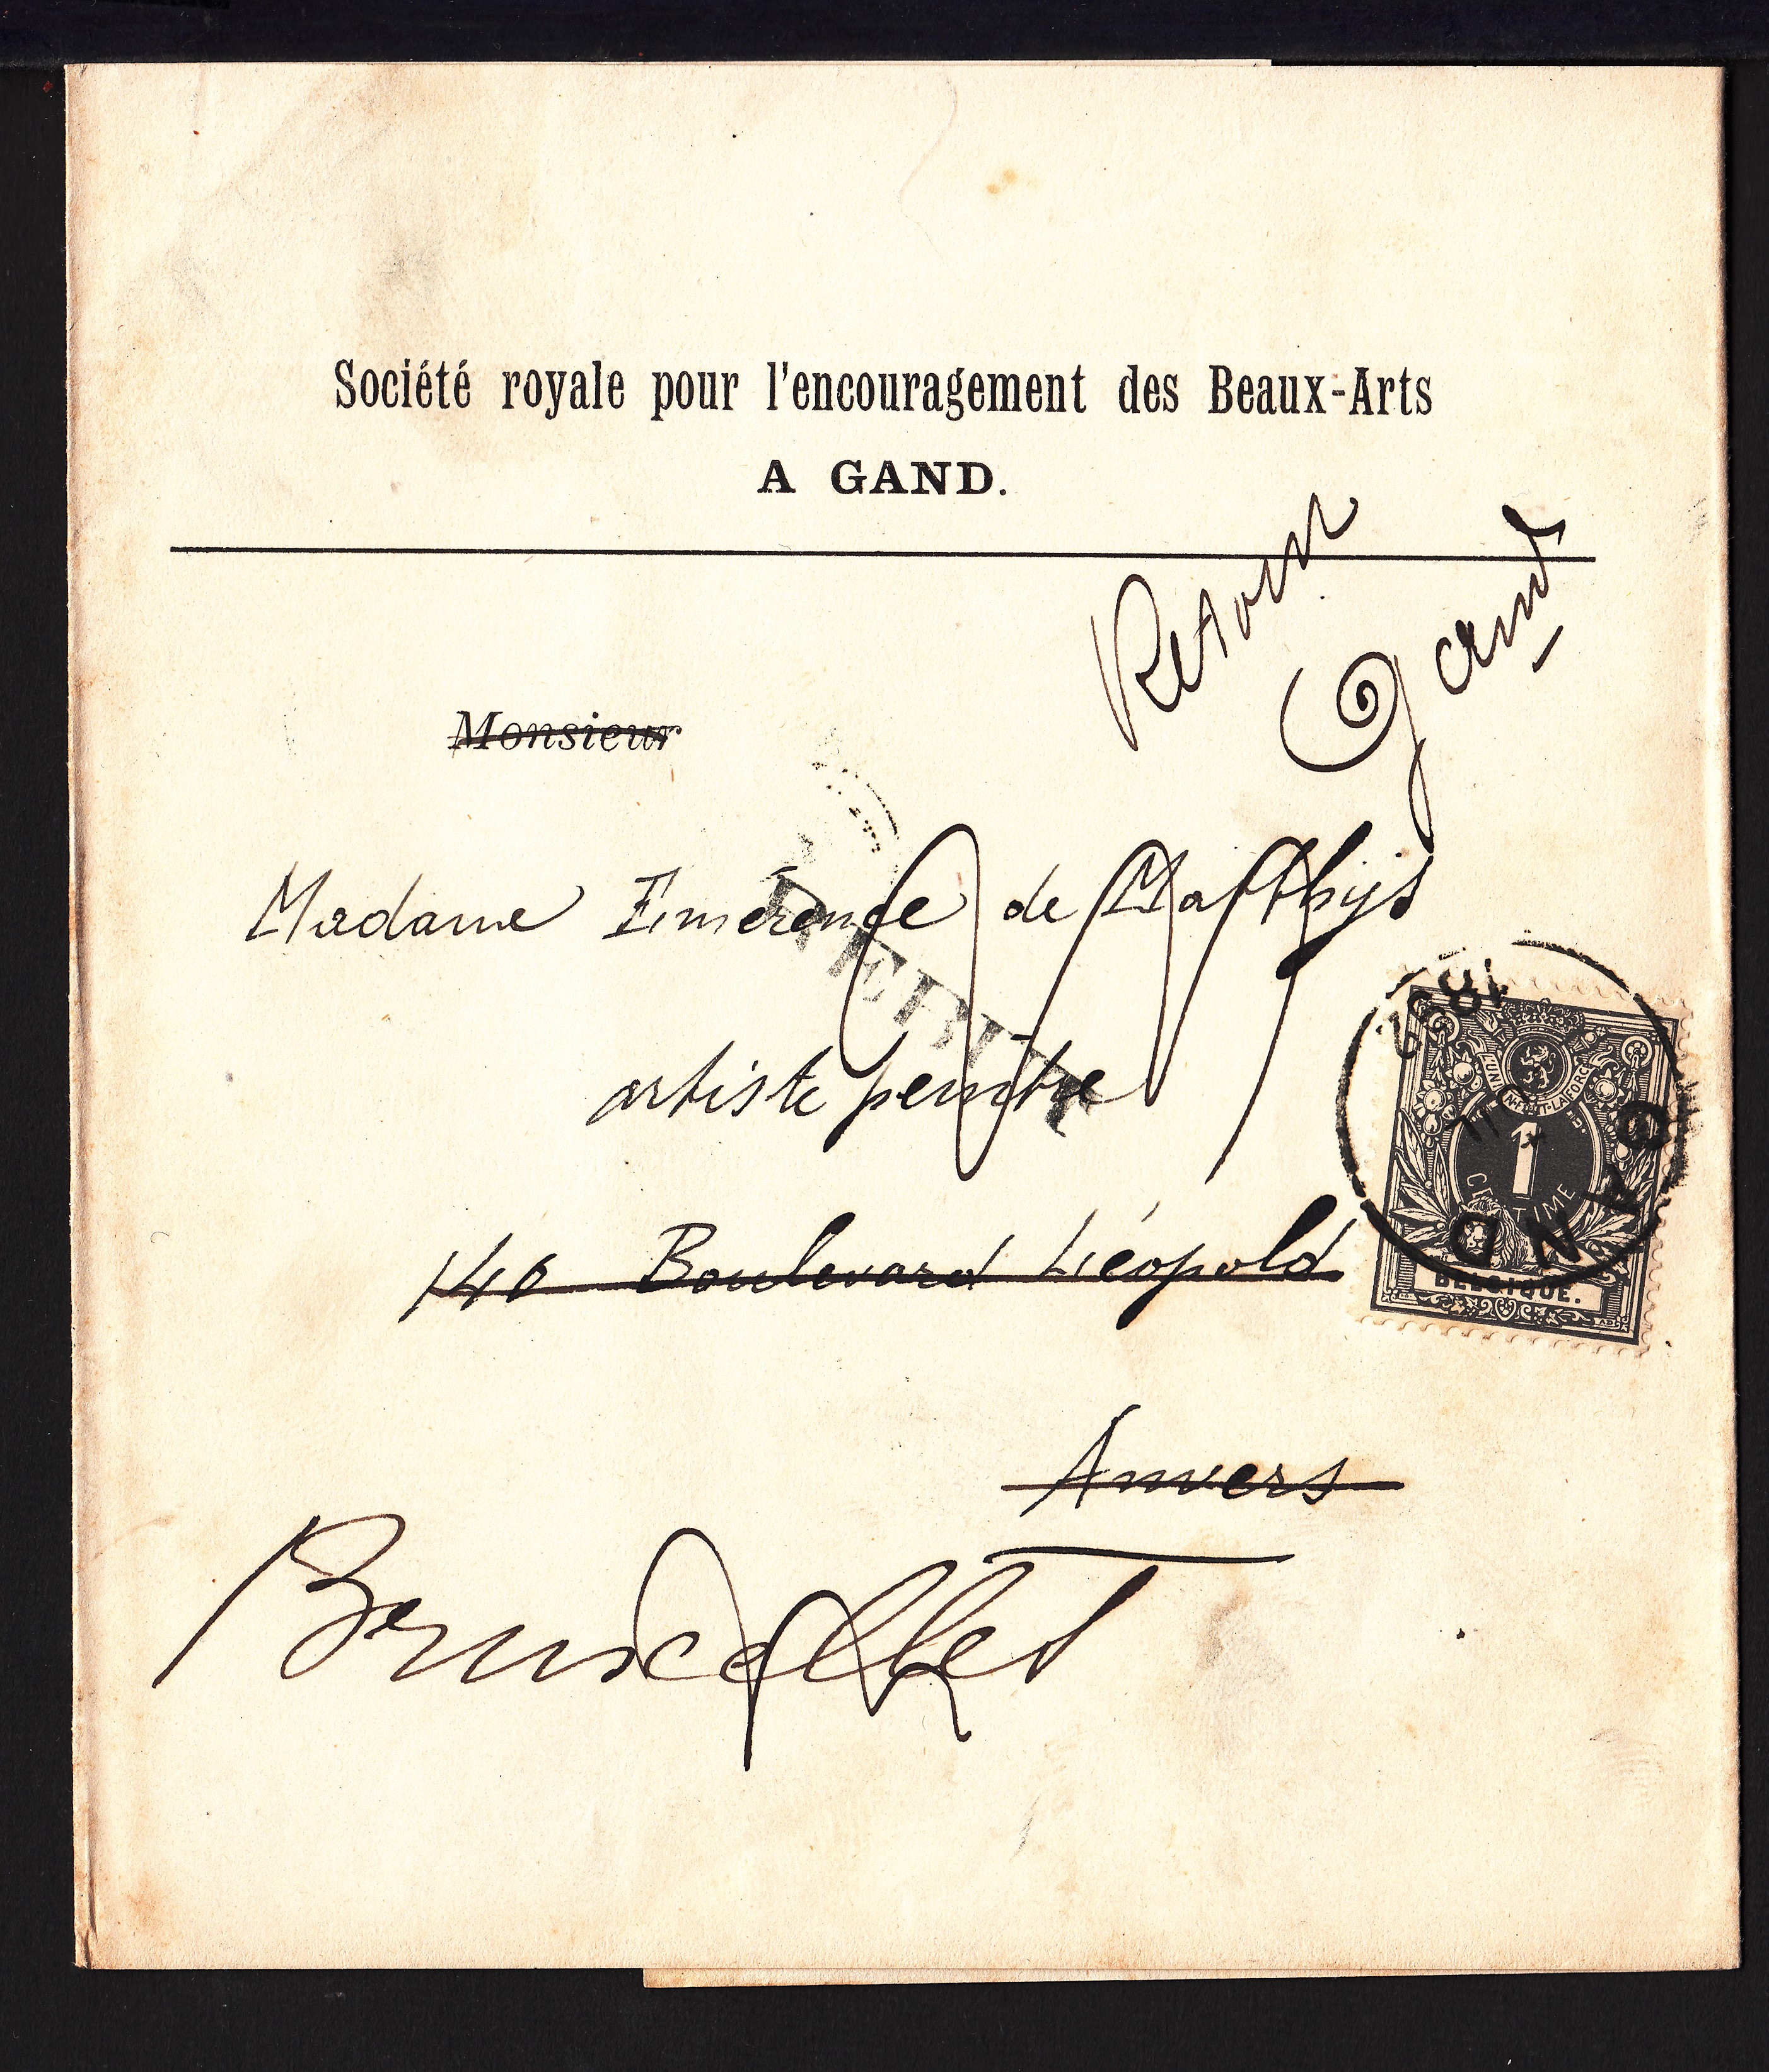 Société royale pour l'encouragement des Beaux-Arts
A GAND.
Retour
Gand
Monsieur
Madame Emérence de Matthijs
artiste peintre
140 Boulevard Léopold
Anvers
Bruxelles
GAND
L'UNION FAIT LA FORCE
1
CENTIME
BELGIQUE.